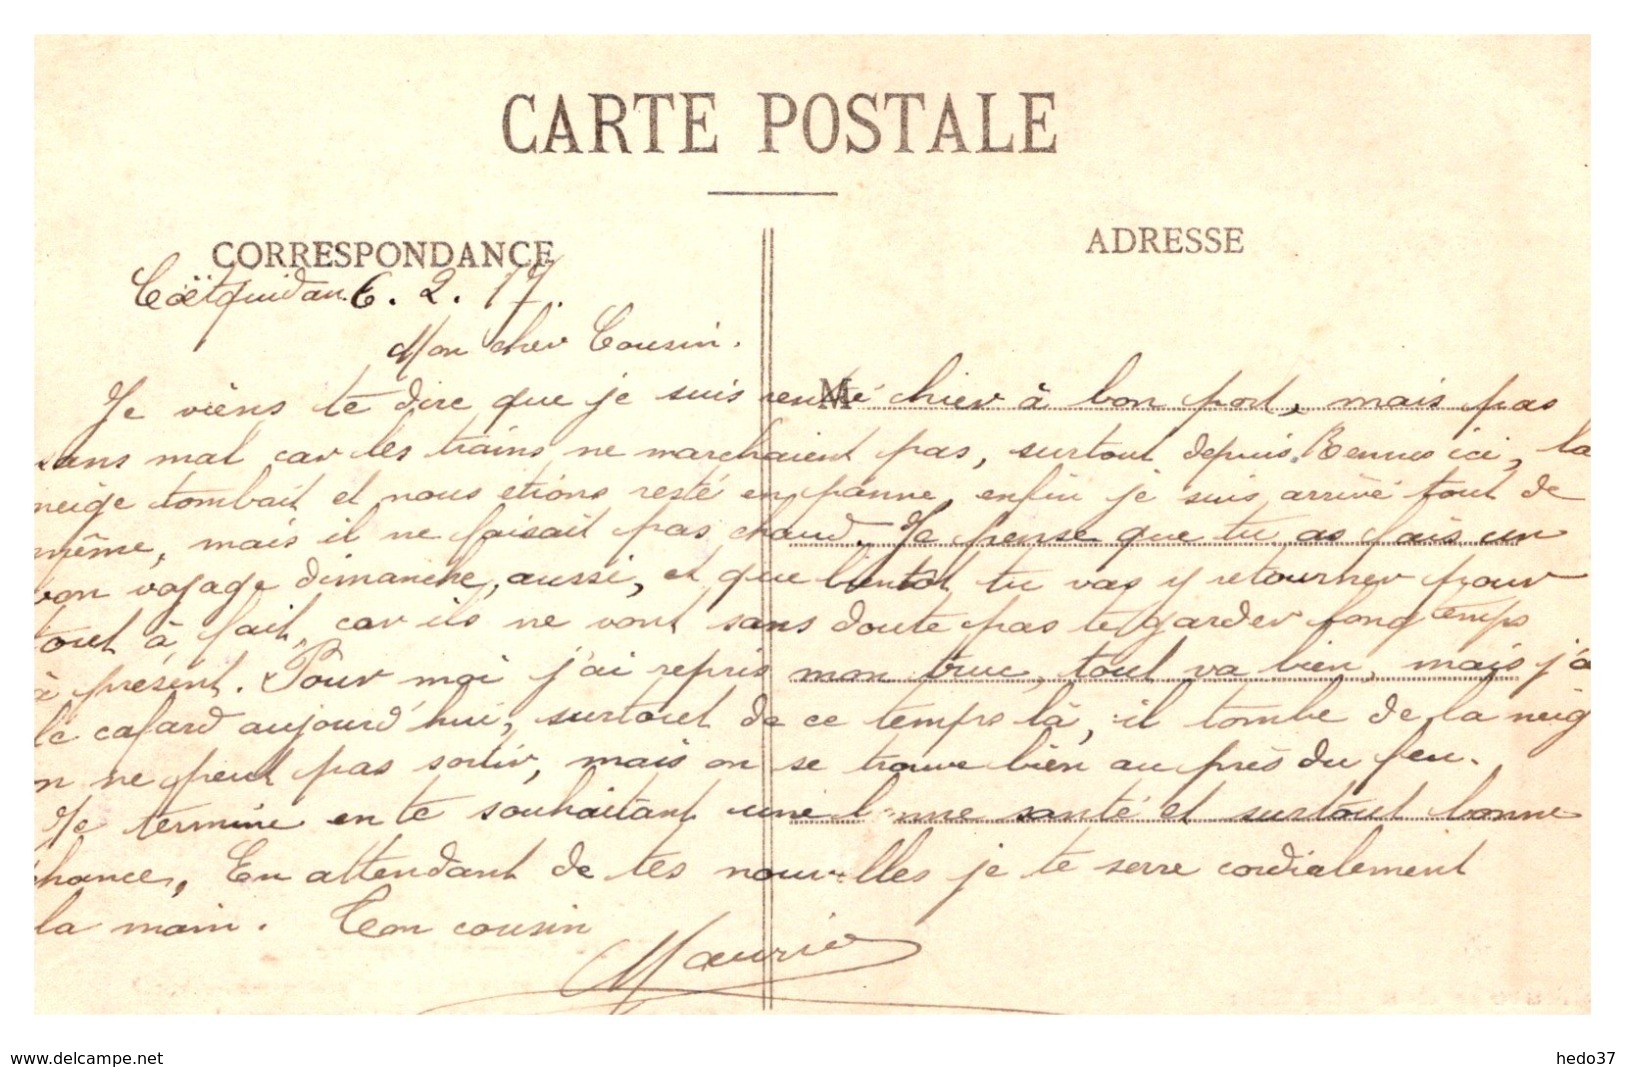 CARTE POSTALE
CORRESPONDANCE
ADRESSE
Coëtquidan 6. 2. 17.
Mon cher Cousin.
M
Je viens te dire que je suis rentré hier à bon port, mais pas
sans mal car les trains ne marchaient pas, surtout depuis Rennes ici, la
neige tombait et nous etions resté en panne, enfin je suis arrivé tout de
même, mais il ne faisait pas chaud. Je pense que tu as fais un
bon voyage dimanche, aussi, et que bientôt tu vas y retourner pour
tout à fait, car ils ne vont sans doute pas te garder longtemps
à présent. Pour moi j'ai repris mon truc, tout va bien, mais j'a
le cafard aujourd'hui, surtout de ce temps là, il tombe de la neig
n ne peut pas sortir, mais on se trouve bien au près du feu.
Je termine en te souhaitant une bonne santé et surtout bonne
chance, En attendant de tes nouvelles je te serre cordialement
la main. Ton cousin
Maurice
www.delcampe.net
hedo37